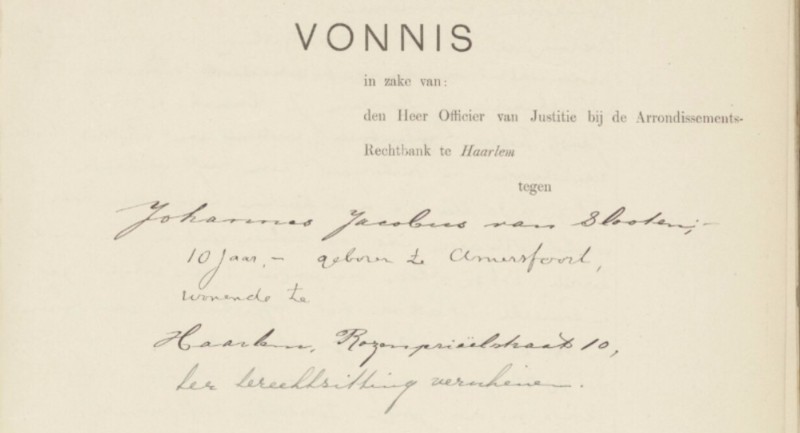 VONNIS
in zake van:
den Heer Officier van Justitie bij de Arrondissements-
Rechtbank te Haarlem
tegen
Johannes Jacobus van Slooten,-
10 jaar,- geboren te Amersfoort,
wonende te
Haarlem, Rozenprieëlstraat 10,
ter terechtzitting verschenen.